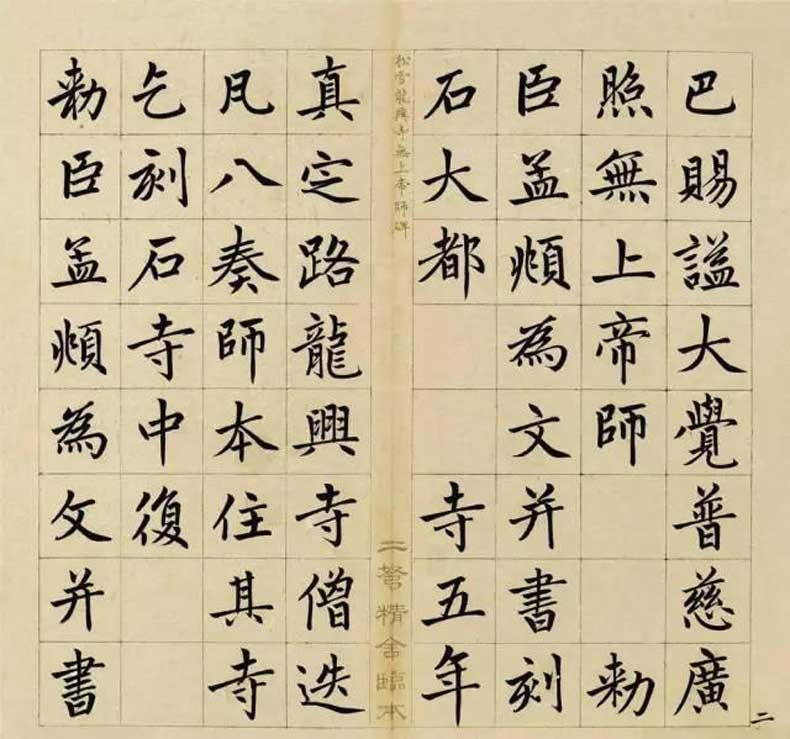 巴賜謚大覺普慈廣
照無上帝師 勑
臣孟頫為文并書刻
石大都 寺五年
二
松雪龍興寺無上帝師碑
二弩精舍臨本
真定路龍興寺僧迭
凡八奏師本住其寺
乞刻石寺中復
勑臣孟頫為文并書